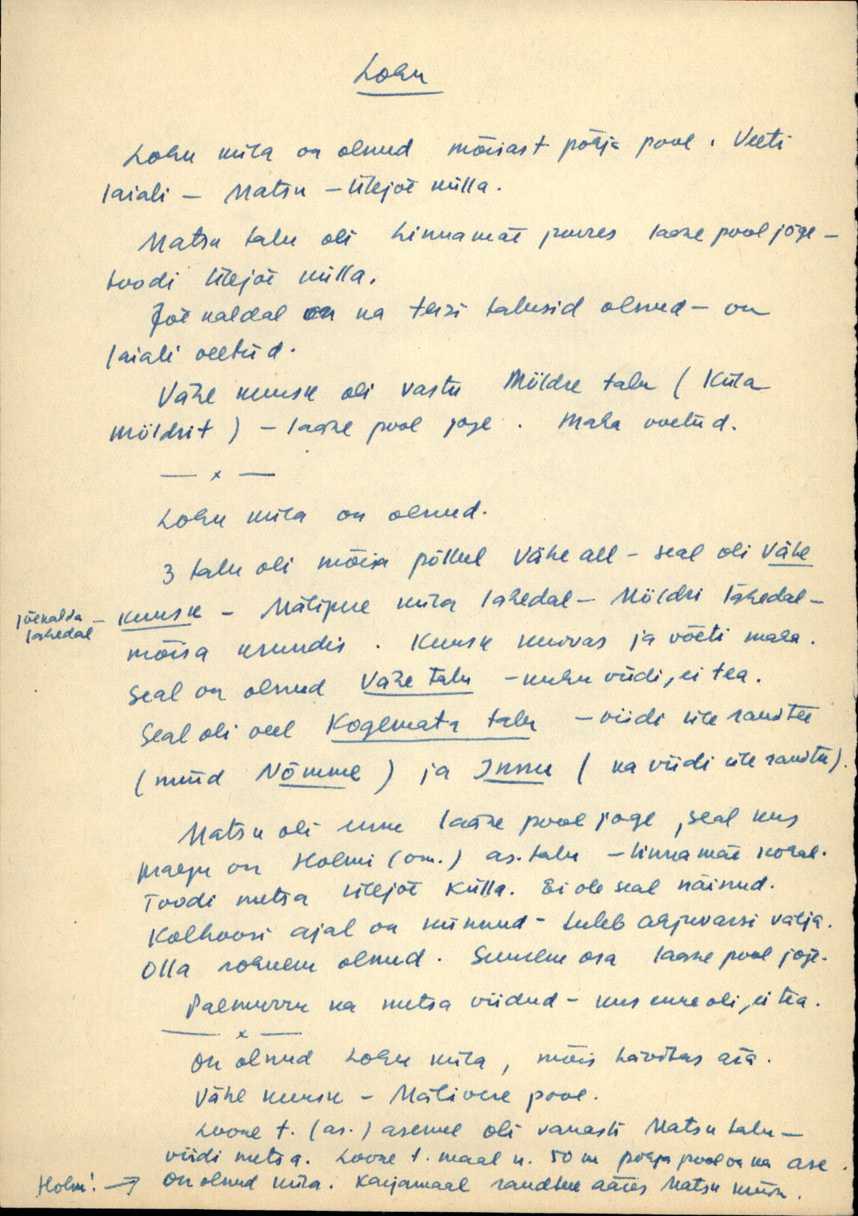 Lohu
Lohu küla on olnud mõisast põhja pool. Veeti
laiali – Matsu – Ülejõe külla.
Matsu talu oli Linnamäe juures lääne pool jõge –
toodi Ülejõe külla.
Jõe kaldal on ka teisi talusid olnud – on
laiali veetud.
Vähe kuusk oli vastu Möldre talu (Küla
möldrit) – lääne pool jõge. Maha võetud.
— x —
Lohu küla on olnud.
3 talu oli mõisa põllul Vähe all – seal oli Vähe
jõekalda – kuusk – Mälipere küla lähedal – Möldri lähedal –
lähedal
mõisa krundis. Kuusk kuivas ja võeti maha.
Seal on olnud Vähe talu – kuhu viidi, ei tea.
Seal oli veel Kogemata talu – viidi üle raudtee
(nüüd Nõmme) ja Innu (ka viidi üle raudtee).
Matsu oli enne lääne pool jõge, seal kus
praegu on Holmi (om.) as. talu – linnamäe kohal.
Toodi metsa Ülejõe külla. Ei ole seal näinud.
Kolhoosi ajal on kündnud – tuleb ahjuvarsi välja.
Olla rohkem olnud. Suurem osa lääne pool jõge.
Palmurru ka metsa viidud – kus enne oli, ei tea.
— x —
On olnud Lohu küla, mõis hävitas ära.
Vähe kuusk – Mälivere pool.
Loone t. (as.) asemel oli vanasti Matsu talu –
viidi metsa. Loone t. maal u. 50 m põhja pool on ka ase.
Holmi: → On olnud küla. Karjamaal raudtee ääres Matsu